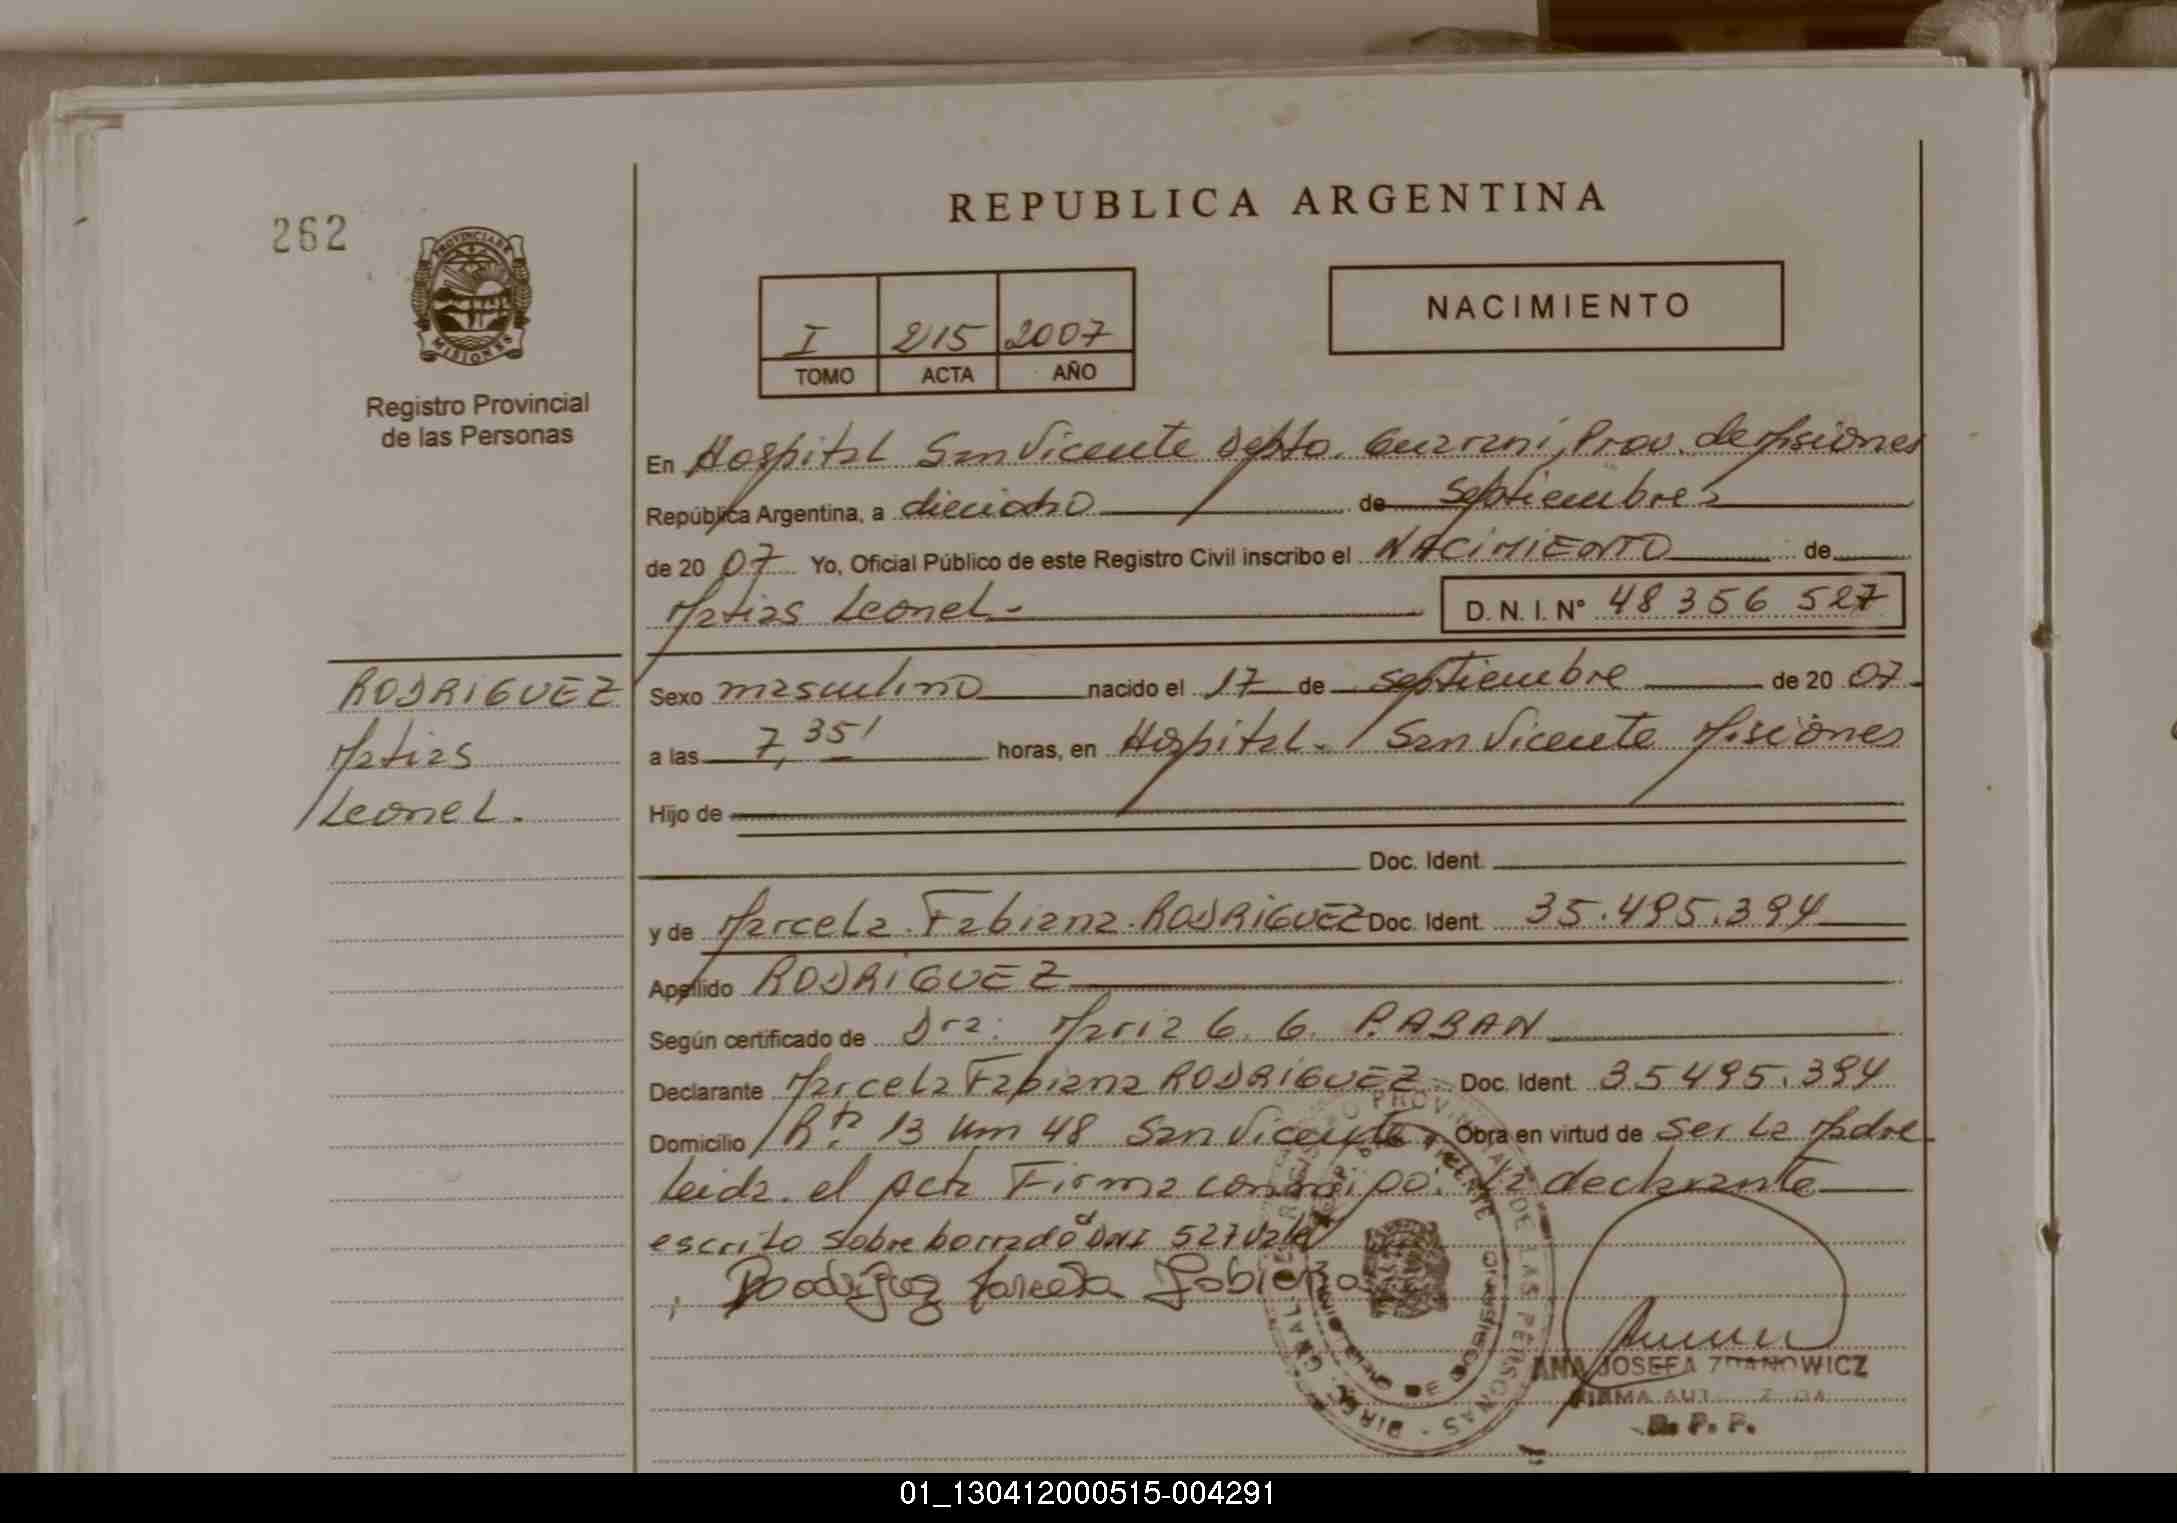 262
PROVINCIA DE
MISIONES
Registro Provincial
de las Personas
REPUBLICA ARGENTINA
I 215 2007
TOMO ACTA AÑO
NACIMIENTO
En Hospital San Vicente Dpto. Guarani, Prov. de Misiones
República Argentina, a dieciocho de septiembre
de 20 07 Yo, Oficial Público de este Registro Civil inscribo el NACIMIENTO de
Matias Leonel.
D. N. I. N° 48 356 527
RODRIGUEZ
Matias
Leonel.
Sexo masculino nacido el 17 de septiembre de 20 07
a las 7,35' horas, en Hospital. San Vicente Misiones
Hijo de
Doc. Ident.
y de Marcela Fabiana RODRIGUEZ Doc. Ident. 35.495.394
Apellido RODRIGUEZ
Según certificado de Dra: Maria G. G. P.ABAN
Declarante Marcela Fabiana RODRIGUEZ Doc. Ident. 35495.394
Domicilio Rta 13 Km 48 San Vicente Obra en virtud de ser la Madre
leida el Acta Firma conmigo la declarante
escrito sobre borrado DNI 527 vale
Roodriguez Marcela Fabiana
ANA JOSEFA ZDANOWICZ
R. P. P.
01_130412000515-004291